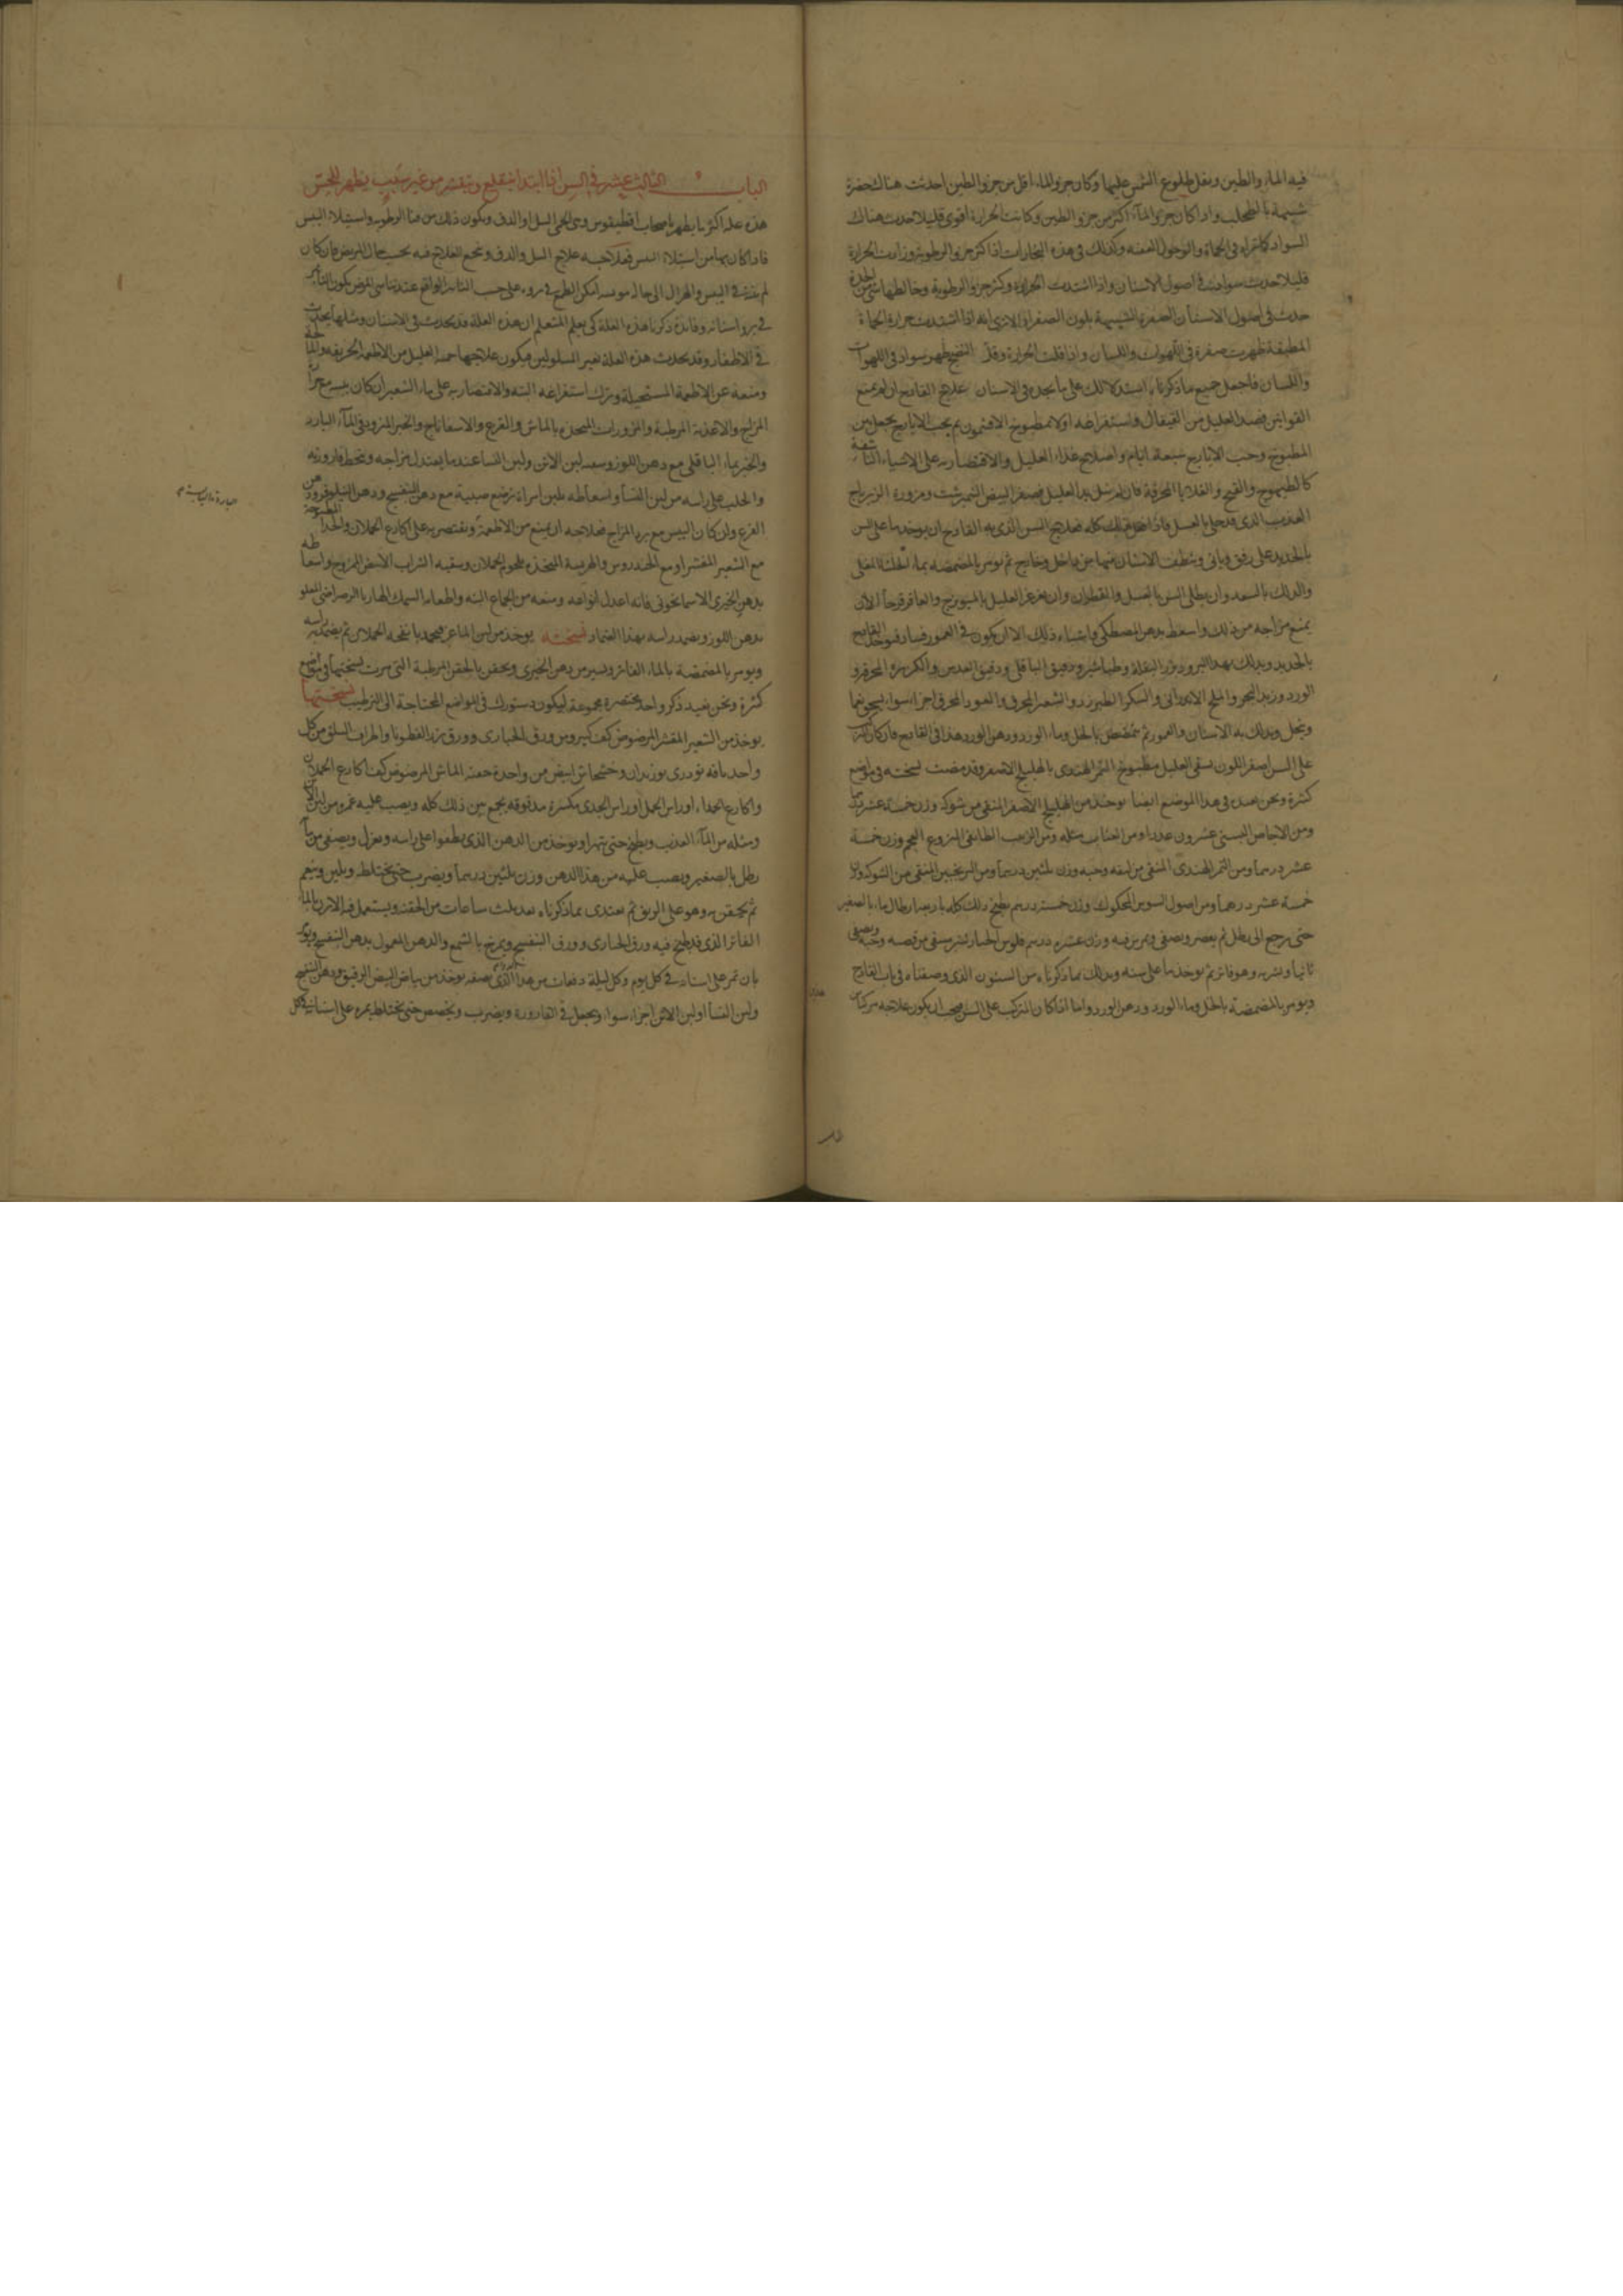 فيه الماء والطين وبفعل طلوع الشمس عليها وكان جزو الماء اقل من جزو الطين احدثت هناك خضرة
شبيهة بالطحلب واذا كان جزو الماء اكثر من جزو الطين وكانت الحرارة اقوى قليلا حدث هناك
السواد كما تراه في الحماة والوحول العفنة وكذلك في هذه البخارات اذا كثر جزو الرطوبة وزادت الحرارة
قليلا حدث سواد في اصول الاسنان واذا اشتدت الحرارة وكثر جزو الرطوبة وخالطها شي من
حدث في اصول الاسنان الصفرة الشبيهة بلون الصفرا الا ترى انه اذا اشتدت حرارة الحماة
المطبقة ظهرت صفرة في اللهوات واللسان واذا قلت الحرارة وقل النضج ظهر سواد في اللهوات
واللسان فاجعل جميع ما ذكرناه استدلالك على ما تجده في الاسنان علاج القادح ان لم يمنع
القوانين فصد العليل من القيفال واستفراغه اولا بمطبوخ الافتيمون ثم بحب الايارج يجعل بين
المطبوخ وحب الايارج سبعة ايام واصلاح غذاء العليل والاقتصار به على الاشياء الناشفة
كالطيهوج والقبج والقلايا المحرقة فان لم تنل يد العليل فصفر البيض النيمبرشت ومزورة الزيرباج
بالحديد على رفق وتأني وينظف الاسنان منها من داخل وخارج ثم يومر بالمضمضة بماء
والدلك بالسعد وان يطلى السن بالعسل والقطران وان يغرغر العليل بالميويزج والعاقرقرحا الا ان
يمنع مزاجه من ذلك واسعط بدهن المصطكي وما شاء ذلك الا ان يكون في العمور فساد
الورد وزبد البحر والملح الاندراني والسكر الطبرزد والشعير المحرق والعود المحرق اجزا سوا يسحق
وينخل ويدلك به الاسنان والعمور ثم يتمضمض بالخل وماء الورد ودهن الورد هذا في القادح فان كان
على السن اصفر اللون سقي العليل مطبوخ التمر الهندي بالهليلج الاصفر وقد مضت نسخته في مواضع
كثيرة ونحن نعيده في هذا الموضع ايضا يوخذ من الهليلج الاصفر المنقى من شوكه وزن خمسة عشر
ومن الاجاص البستي عشرون عددا ومن العناب مثله ومن الزبيب الطائفي المنزوع العجم وزن خمسة
عشر درهما ومن التمر الهندي المنقى من ليفه وحبه وزن ثلثين درهما ومن الترنجبين المنقى من الشوك وزن
خمسة عشر درهما ومن اصول السوس المحكوك وزن خمسة درهم يطبخ ذلك كله باربعة ارطال ماء بالصغير
حتى يرجع الى رطل ثم يعصر ويصفى ويمرس فيه وزن عشرة درهم فلوس الخيارشنبر منقى من قصبه وحبه ويصفى
ثانيا ويشربه وهو فاتر ثم يوخذ ما على سنه ويدلك بما ذكرناه من السنون الذي وصفناه في باب القادح
ويومر بالمضمضة بالخل وماء الورد ودهن الورد واما اذا كان المركب على السن فيجب ان يكون علاجه مركبا
الباب الثالث عشر في السن اذا ابتدا ينقلع وينقشر من غير سبب يظهر للحس
هذه علة اكثر ما يظهر باصحاب اقطيقوس وهي حمى السل او الدق ويكون ذلك من فنا الرطوبة واستيلاء اليبس
فاذا كان بها من استيلاء اليبس فعلاجه علاج السل والدق وينجع العلاج فيه بحسب حال المريض فان كان
في برو اسنانه وفائدة ذكرنا هذه العلة كي يعلم المتعلم ان هذه العلة قد يحدث في الاسنان ومثلها يحدث
في الاظفار وقد يحدث هذه العلة بغير المسلولين فيكون علاجها حمية العليل من الاطعمة الحريفة والمالحة
ومنعه عن الاطعمة المستحيلة وترك استفراغه البتة والاقتصار به على ماء الشعير ان كان يبسه مع حرارة
المزاج والاغذية المرطبة والمزورات المتخذة بالماش والقرع والاسفاناج والخبز المثرود في الماء البارد
والخبز بماء الباقلى مع دهن اللوز وسقيه لبن الاتن ولبن النسا عندما يعتدل مزاجه وينحط قارورته
والحلب على راسه من لبن النسا واسعاطه بلبن امراة ترضع صبية مع دهن البنفسج ودهن النيلوفر ودهن
القرع وان كان اليبس مع برد المزاج فعلاجه ان يمنع من الاطعمة ويقتصر به على اكارع الحملان والجدا
مع الشعير المقشر او مع الخندروس والهريسة المتخذة بلحوم الحملان وسقيه الشراب الابيض الممزوج واسعاطه
بدهن الخيري الاسمانجوني فانه اعدل انواعه ومنعه من الجماع البتة واطعامه السمك الهاربا الرضراضي المقلو
بدهن اللوز ويضمد راسه بهذا الضماد نسخته يوخذ من لبن الماعز فيجمد بانفحة الحملان ثم يضمد به راسه
ويومر بالمضمضة بالماء الفاتر ويسير من دهن الخيري ويحقن بالحقن المرطبة التي مرت نسختها في مواضع
كثيرة ونحن نعيد ذكر واحد مختصرة مجموعة ليكون دستورك في المواضع المحتاجة الى الترطيب نسختها
يوخذ من الشعير المقشر المرضوض كف كبير ومن ورق الخبازى وورق بزر القطونا واطراف السلق من كل
واحد باقة تودري بوزيدان وخشخاش ابيض من واحدة حفنة الماش المرضوض كف اكارع الحملان
واكارع الجداء وراس الحمل او راس الجدي مكسرة مدقوقة يجمع بين ذلك كله ويصب عليه
ومثله من الماء العذب ويطبخ حتى يتهرا ويوخذ من الدهن الذي يطفوا على راسه ويعزل ويصفى من مائه
رطل بالصغير ويصب عليه من هذا الدهن وزن ثلثين درهما ويضرب حتى يختلط ويلين وينعم
ثم يحتقن به وهو على الريق ثم يغتذي بما ذكرناه بعد ثلث ساعات من الحقنة ويستعمل فيه الابزن بالماء
الفاتر الذي قد طبخ فيه ورق الخبازى وورق البنفسج ويمرخ بالشمع والدهن المعمول بدهن البنفسج ويومر
بان يمر على اسنانه في كل يوم وكل ليلة دفعات من هذا الذي نصفه يوخذ من بياض البيض الرقيق ودهن البنفسج
ولبن النسا او لبن الاتن اجزاء سوا ويجعل في القارورة ويضرب ويخضخض حتى يختلط يمره على اسنانه في كل